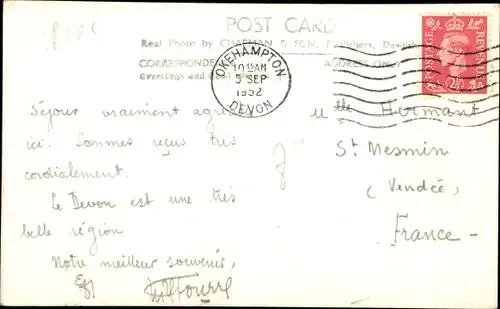 POST CARD
Real Photo by CHAPMAN & SON, Publishers, Dawlish
CORRESPONDE
ADDRESS ONLY
Greetings and
OKEHAMPTON
10 15 AM
5 SEP
1952
DEVON
POSTAGE
REVENUE
2½
Séjour vraiment
ici. Sommes reçus très
cordialement.
Le Devon est une très
belle région
Notre meilleur souvenir,
Mlle Hermant
St Mesmin
(Vendée)
France